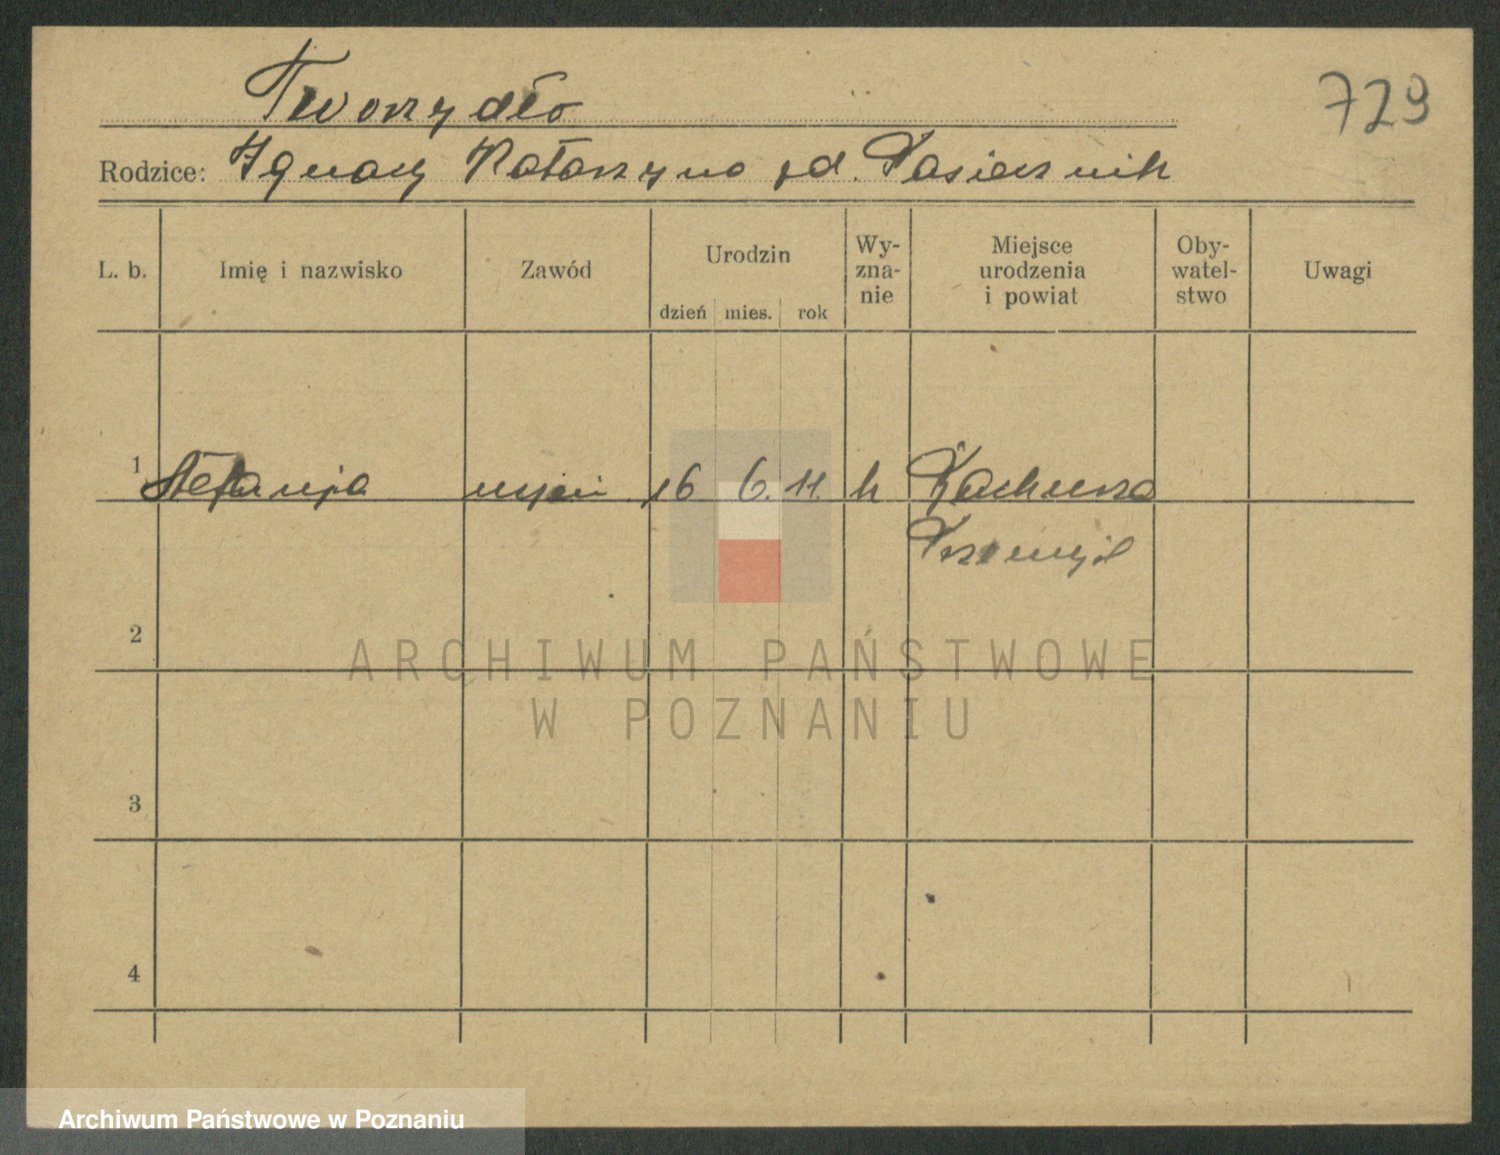 729
Tworzydło
Rodzice: Ignacy Katarzyna zd. Pasiecznik
L. b. Imię i nazwisko Zawód Urodzin dzień mies. rok Wy-zna-nie Miejsce urodzenia i powiat Oby-watel-stwo Uwagi
1 Stefanja 16 6. 11.
Przemyśl
2
ARCHIWUM PAŃSTWOWE
W POZNANIU
3
4
Archiwum Państwowe w Poznaniu